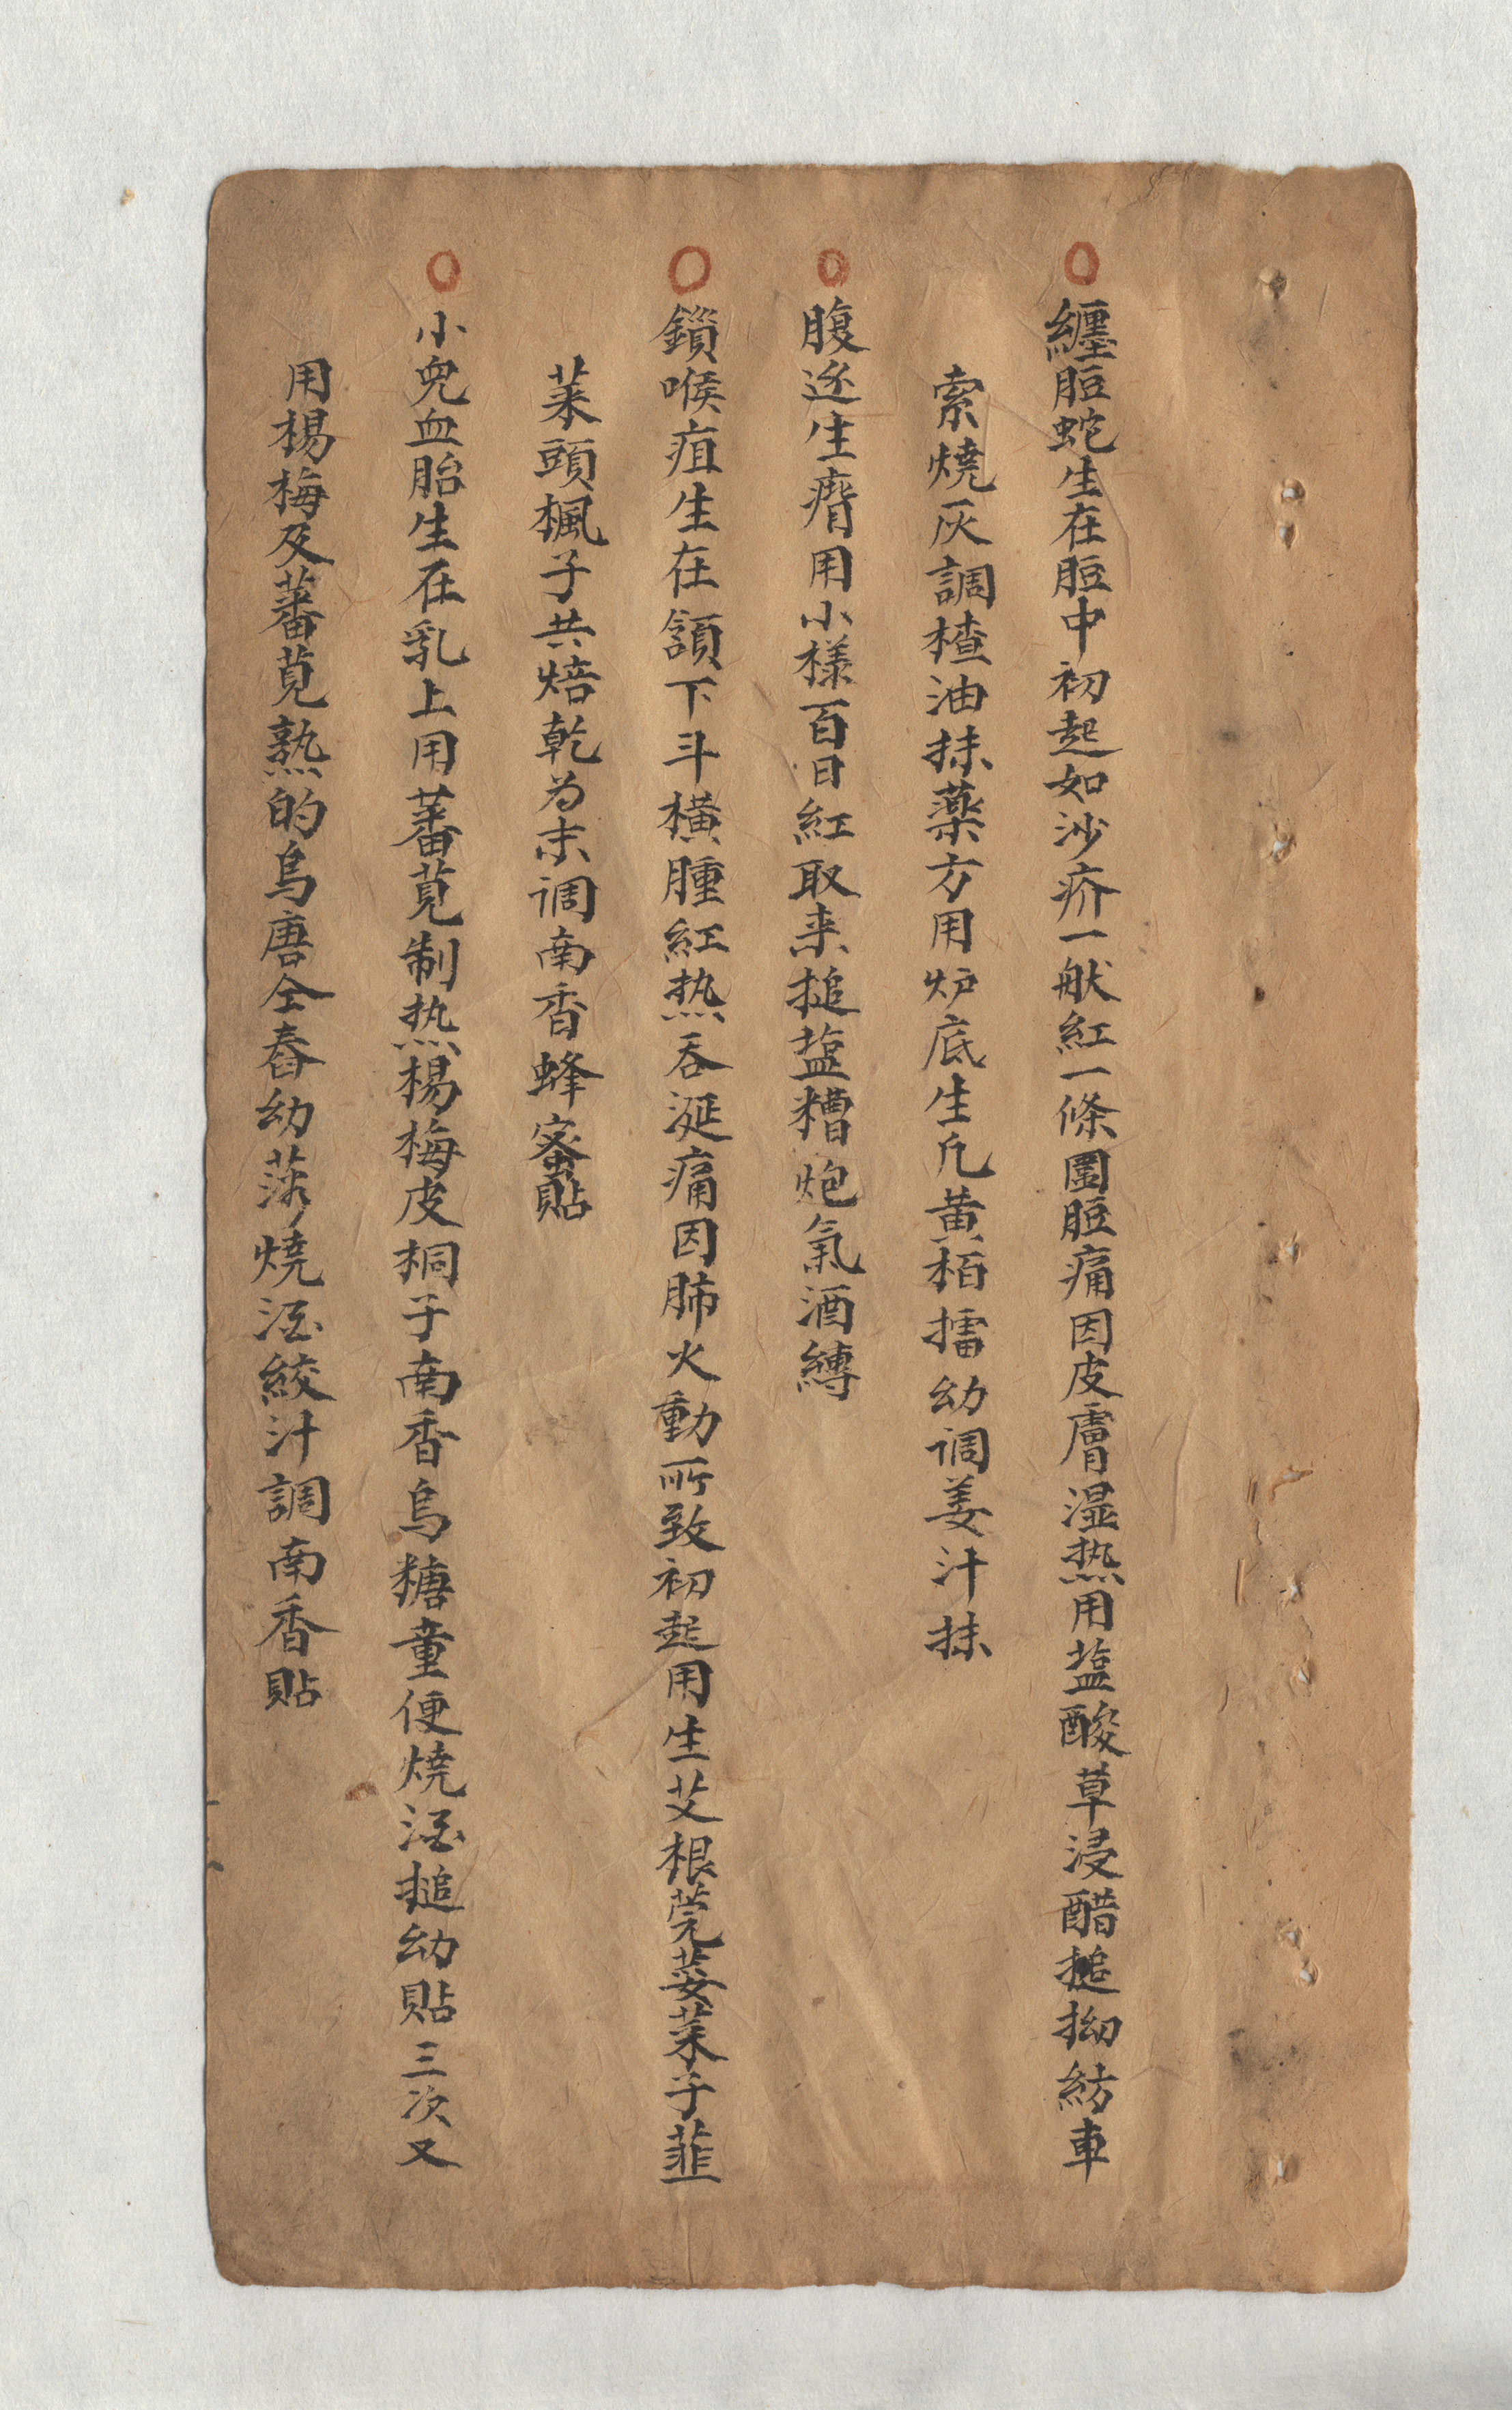 ○纏脰蛇生在脰中初起如沙疥一般紅一條圍脰痛因皮膚湿热用塩酸草浸醋搥拗紡車
索燒灰調楂油抹薬方用炉底生凡黄栢擂幼调姜汁抹
○腹边生癠用小樣百日紅取来搥塩糟炮氣酒縛
○鎖喉疽生在頷下斗横腫紅热吞涎痛因肺火動所致初起用生艾根莞荽菜子韮
菜頭楓子共焙乾为末调南香蜂蜜貼
○小兒血胎生在乳上用蕃莧制热楊梅皮桐子南香烏糖童便燒酒搥幼貼三次又
用楊梅及蕃莧熟的烏唐仝舂幼落燒酒絞汁調南香貼